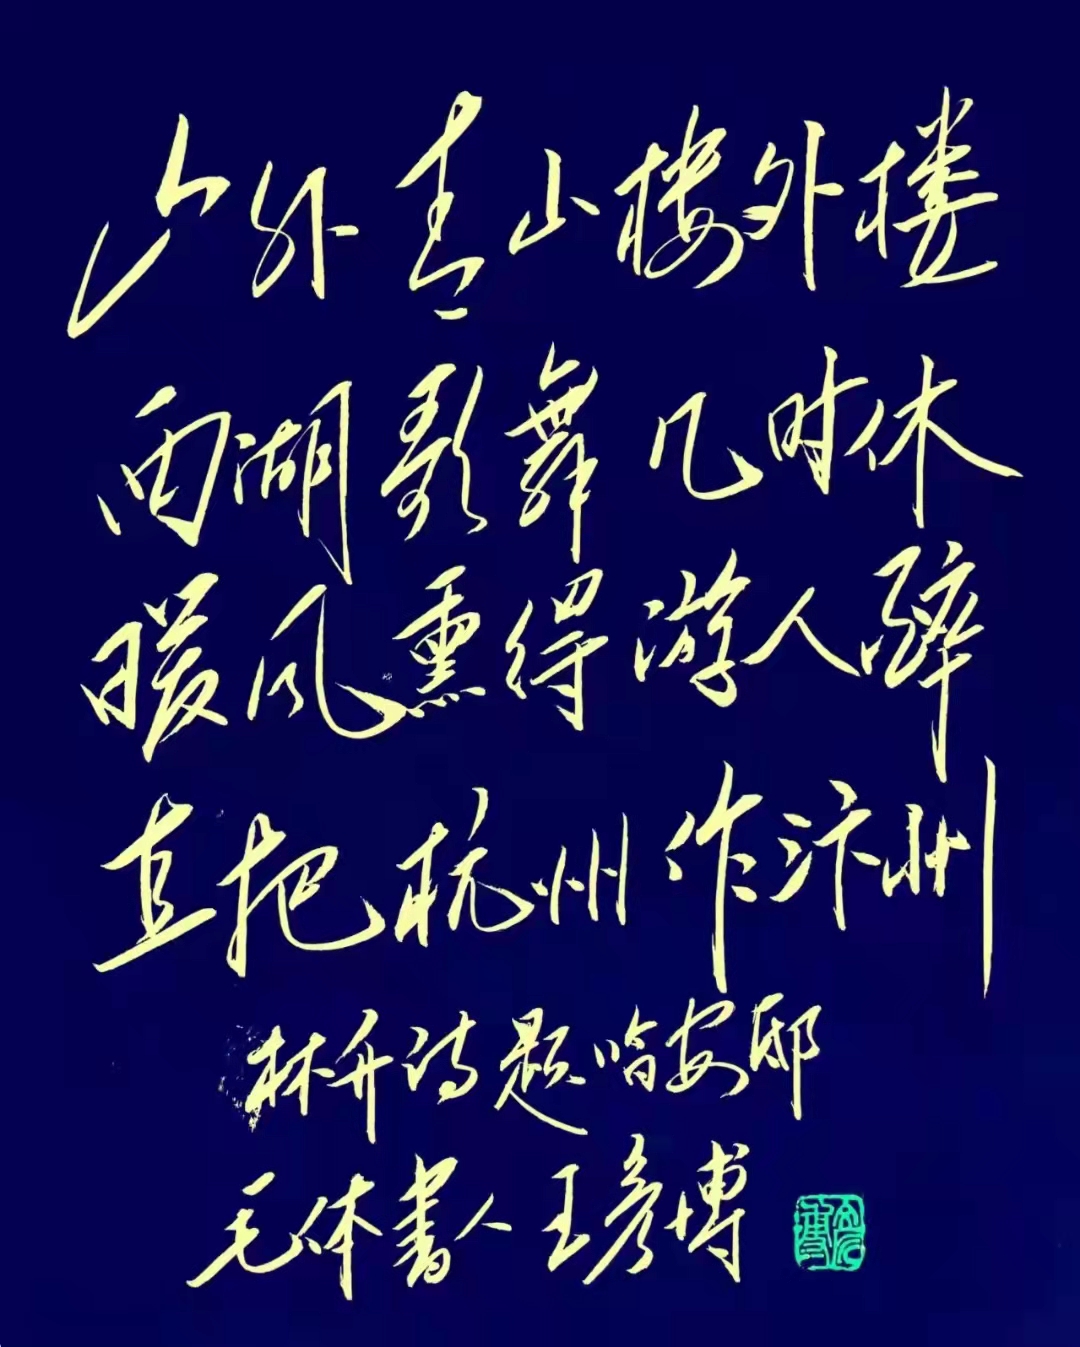 山外青山楼外楼
西湖歌舞几时休
暖风熏得游人醉
直把杭州作汴州
林升诗题临安邸
毛体书人王彦博